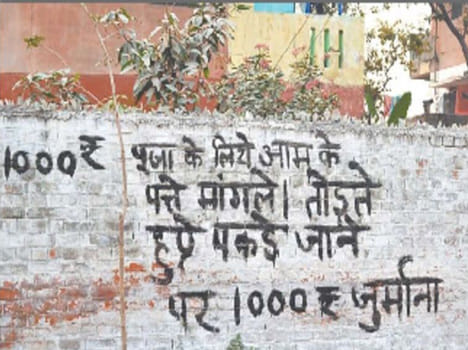 1000₹ पूजा के लिये आम के
पत्ते मांगले। तोड़ते
हुए पकडे जाने
पर 1000 ₹ जुर्माना